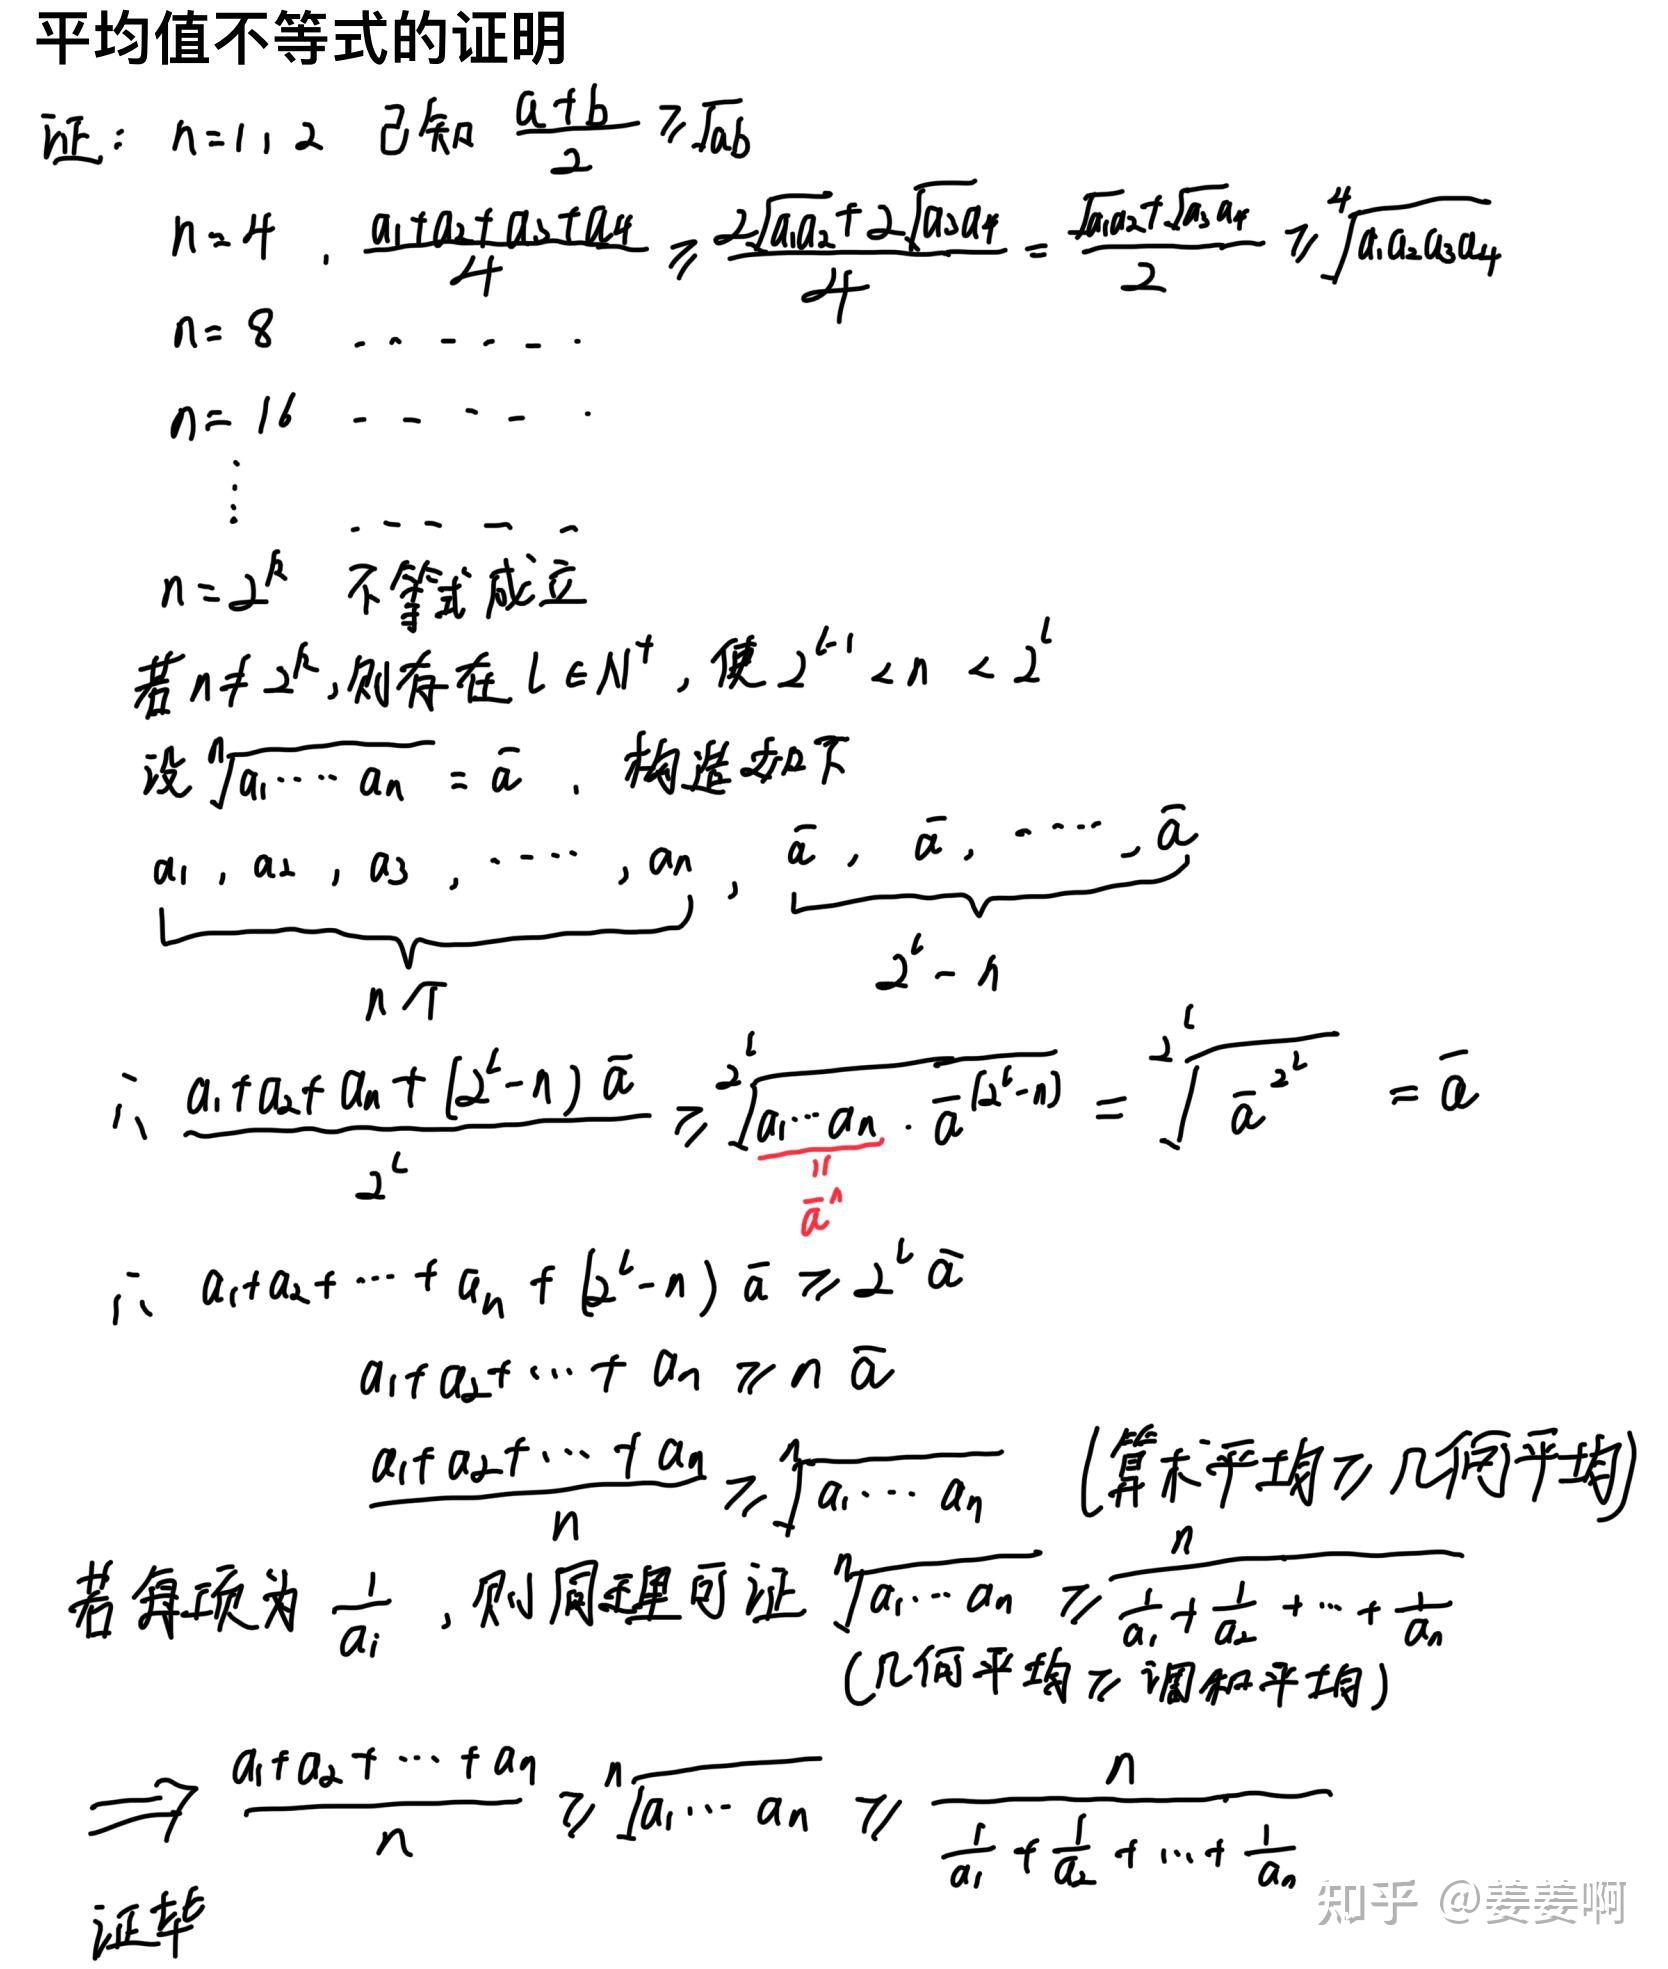 平均值不等式的证明
证: n=1, 2 已知 $\frac{a+b}{2} \geqslant \sqrt{ab}$
n=4, $\frac{a_1+a_2+a_3+a_4}{4} \geqslant \frac{2\sqrt{a_1a_2}+2\sqrt{a_3a_4}}{4} = \frac{\sqrt{a_1a_2}+\sqrt{a_3a_4}}{2} \geqslant \sqrt[4]{a_1a_2a_3a_4}$
n=8 ······
n=16 ·····
⋮ ·····
$n=2^k$ 不等式成立
若 $n \neq 2^k$, 则存在 $l \in N^+$, 使 $2^{l-1} < n < 2^l$
设 $\sqrt[n]{a_1 \cdots\cdots a_n} = \bar{a}$, 构造如下
$a_1, a_2, a_3, \cdots\cdots, a_n, \bar{a}, \bar{a}, \cdots\cdots, \bar{a}$
n个 $2^l-n$
∴ $\frac{a_1+a_2+a_n+(2^l-n)\bar{a}}{2^l} \geqslant \sqrt[2^l]{a_1 \cdots a_n \cdot \bar{a}^{(2^l-n)}} = \sqrt[2^l]{\bar{a}^{2^l}} = \bar{a}$
=
$\bar{a}^n$
∴ $a_1+a_2+\cdots+a_n+(2^l-n)\bar{a} \geqslant 2^l\bar{a}$
$a_1+a_2+\cdots+a_n \geqslant n\bar{a}$
$\frac{a_1+a_2+\cdots+a_n}{n} \geqslant \sqrt[n]{a_1 \cdots a_n}$ (算术平均 ⩾ 几何平均)
若每项为 $\frac{1}{a_i}$, 则同理可证 $\sqrt[n]{a_1 \cdots a_n} \geqslant \frac{n}{\frac{1}{a_1}+\frac{1}{a_2}+\cdots+\frac{1}{a_n}}$
(几何平均 ⩾ 调和平均)
⟹ $\frac{a_1+a_2+\cdots+a_n}{n} \geqslant \sqrt[n]{a_1 \cdots a_n} \geqslant \frac{n}{\frac{1}{a_1}+\frac{1}{a_2}+\cdots+\frac{1}{a_n}}$
证毕
知乎 @姜姜啊